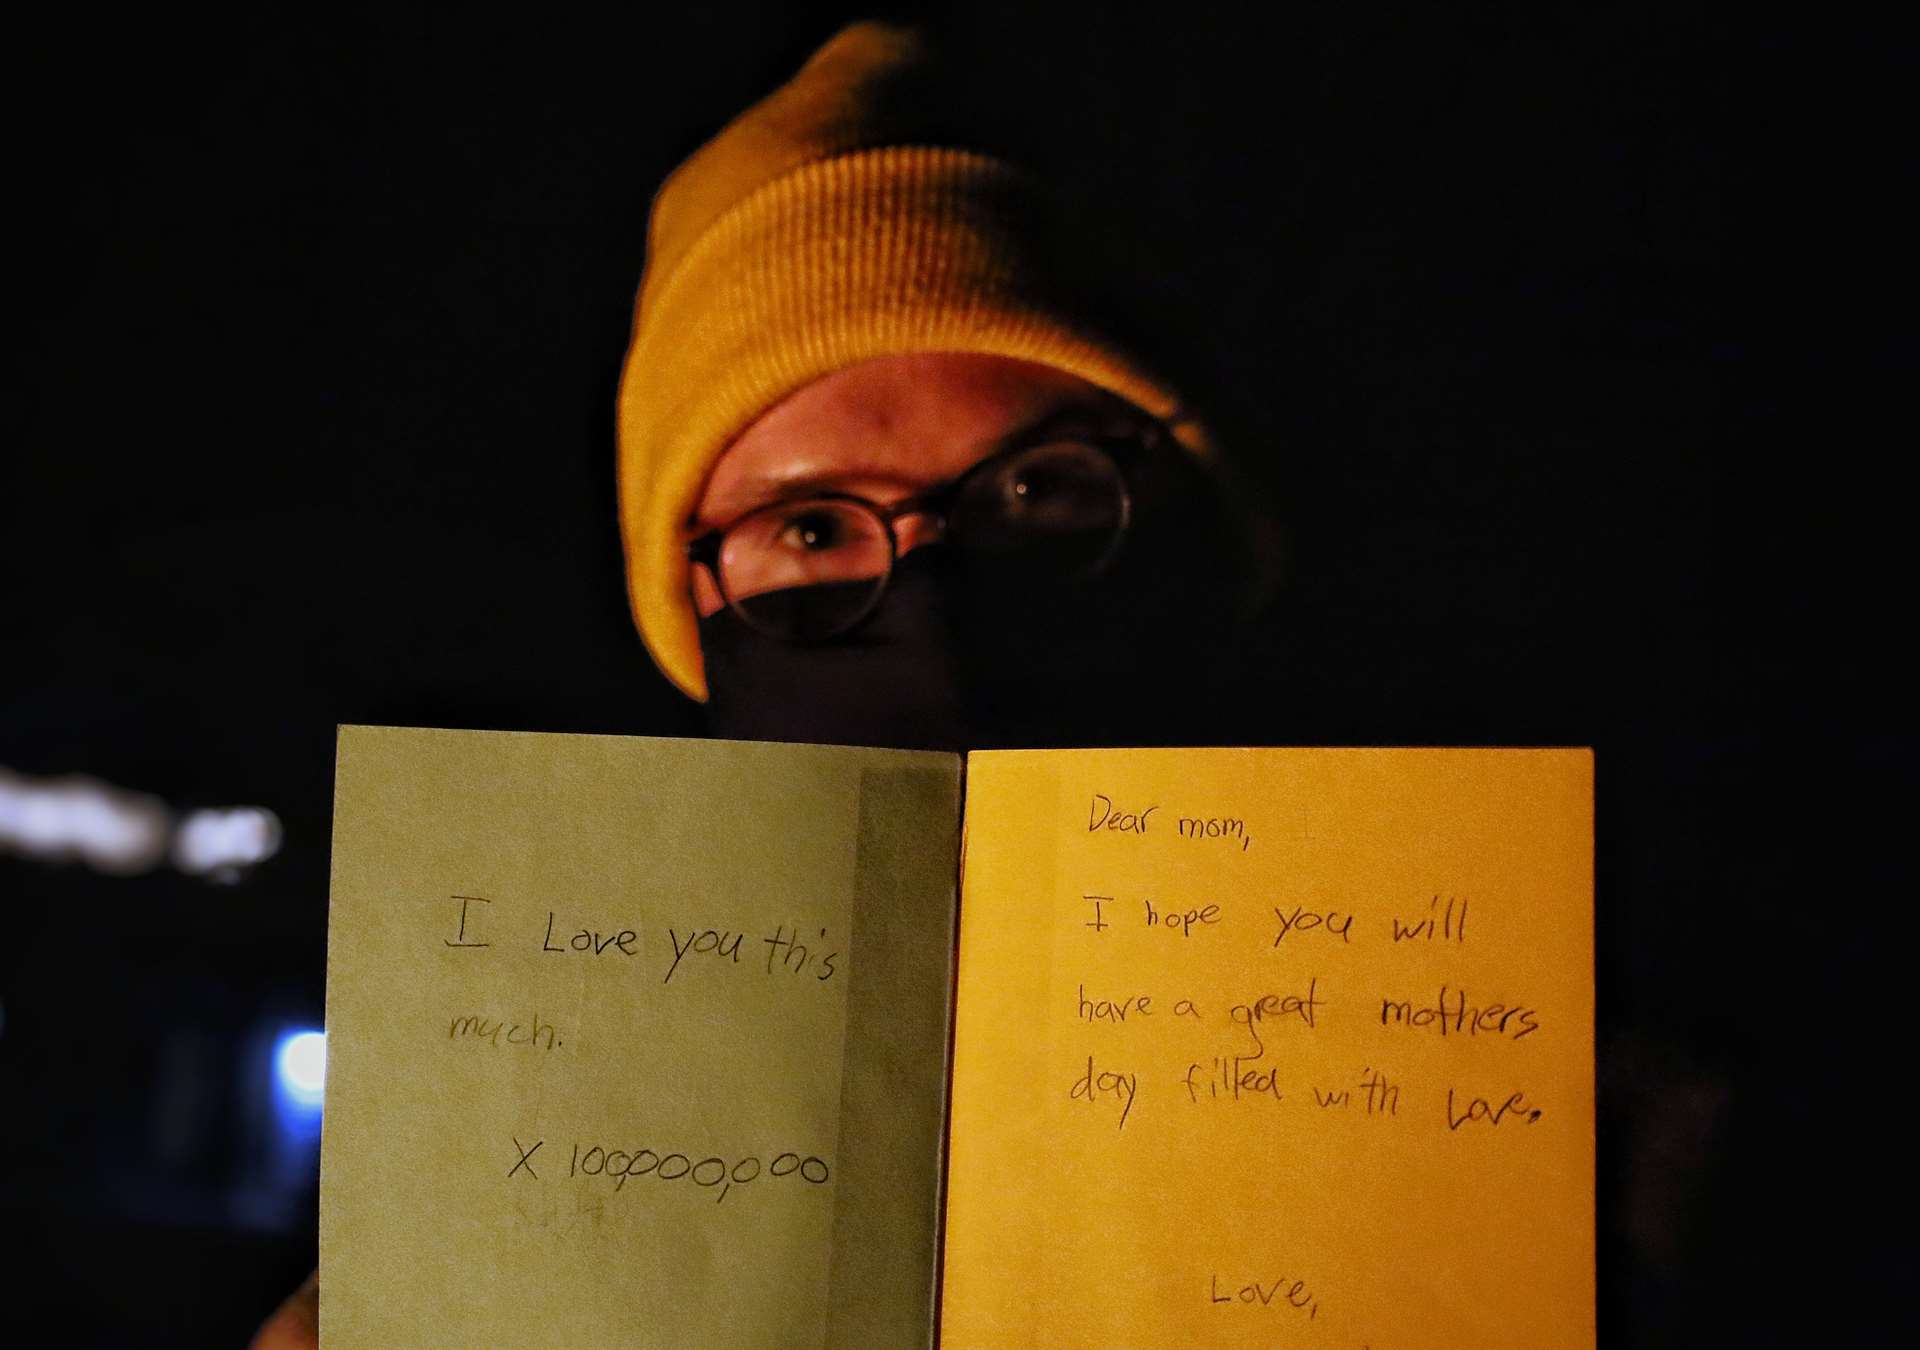 I Love you this
much.
X 100,000,000
Dear mom,
I hope you will
have a great mothers
day filled with Love.
Love,